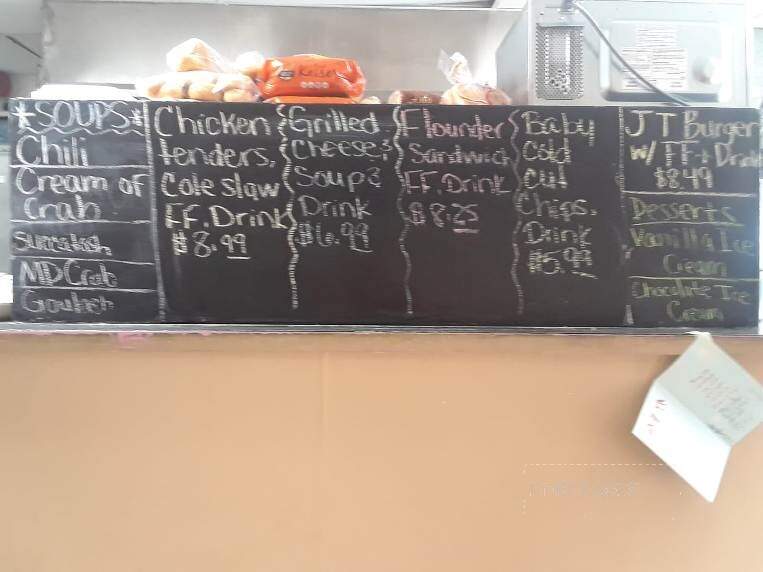 *SOUPS*
Chili
Cream of
Crab
Succotash
MD Crab
Goulash
Chicken
tenders,
Cole slaw
FF. Drink
$8.99
Grilled
Cheese &
Soup &
Drink
$6.99
Flounder
Sandwich
FF. Drink
$8.25
Baby
Cold
Cut
Chips.
Drink
$5.99
JT Burger
w/ FF + Drink
$8.49
Desserts
Vanilla Ice
Cream
Chocolate Ice
Cream